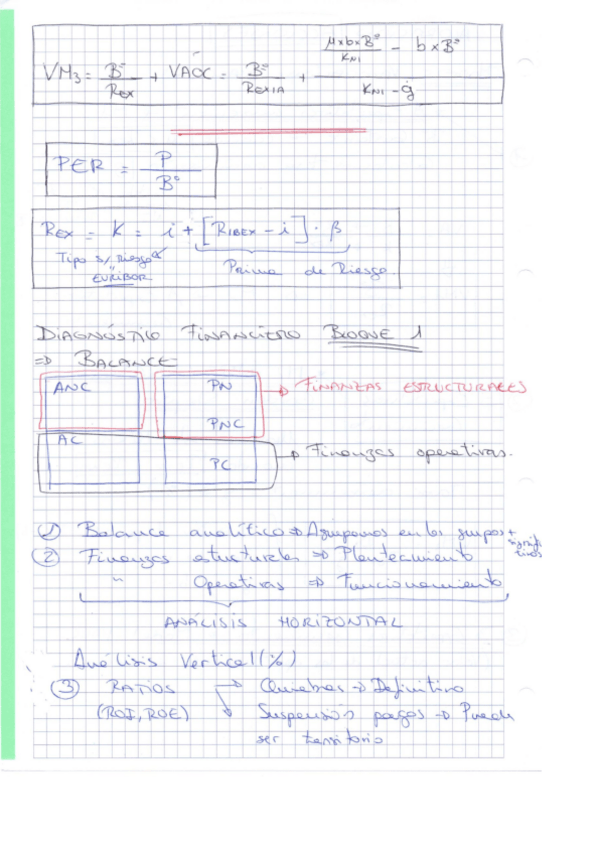 VM₃ = B⁰/Rex + VAOC = B⁰/RexIA + (μxbxB⁰/KN1 - bxB⁰)/(KN1 - g)
PER = P/B⁰
Rex = K = i + [RIBEX - i] · β
Tipo s/ riesgo
Prima de Riesgo.
" EURIBOR
DIAGNÓSTICO FINANCIERO BLOQUE 1
⇒ BALANCE
ANC PN → FINANZAS ESTRUCTURALES
PNC
AC
PC → Finanzas operativas.
① Balance analítico ⇒ Agrupamos en los grupos + significativos
② Finanzas estructurales ⇒ Planteamiento
" Operativas ⇒ Funcionamiento
ANÁLISIS HORIZONTAL
Análisis Vertical (%)
③ RATIOS → Quiebras → Definitivo
(ROI, ROE) ↓ Suspensión pagos → Puede
ser